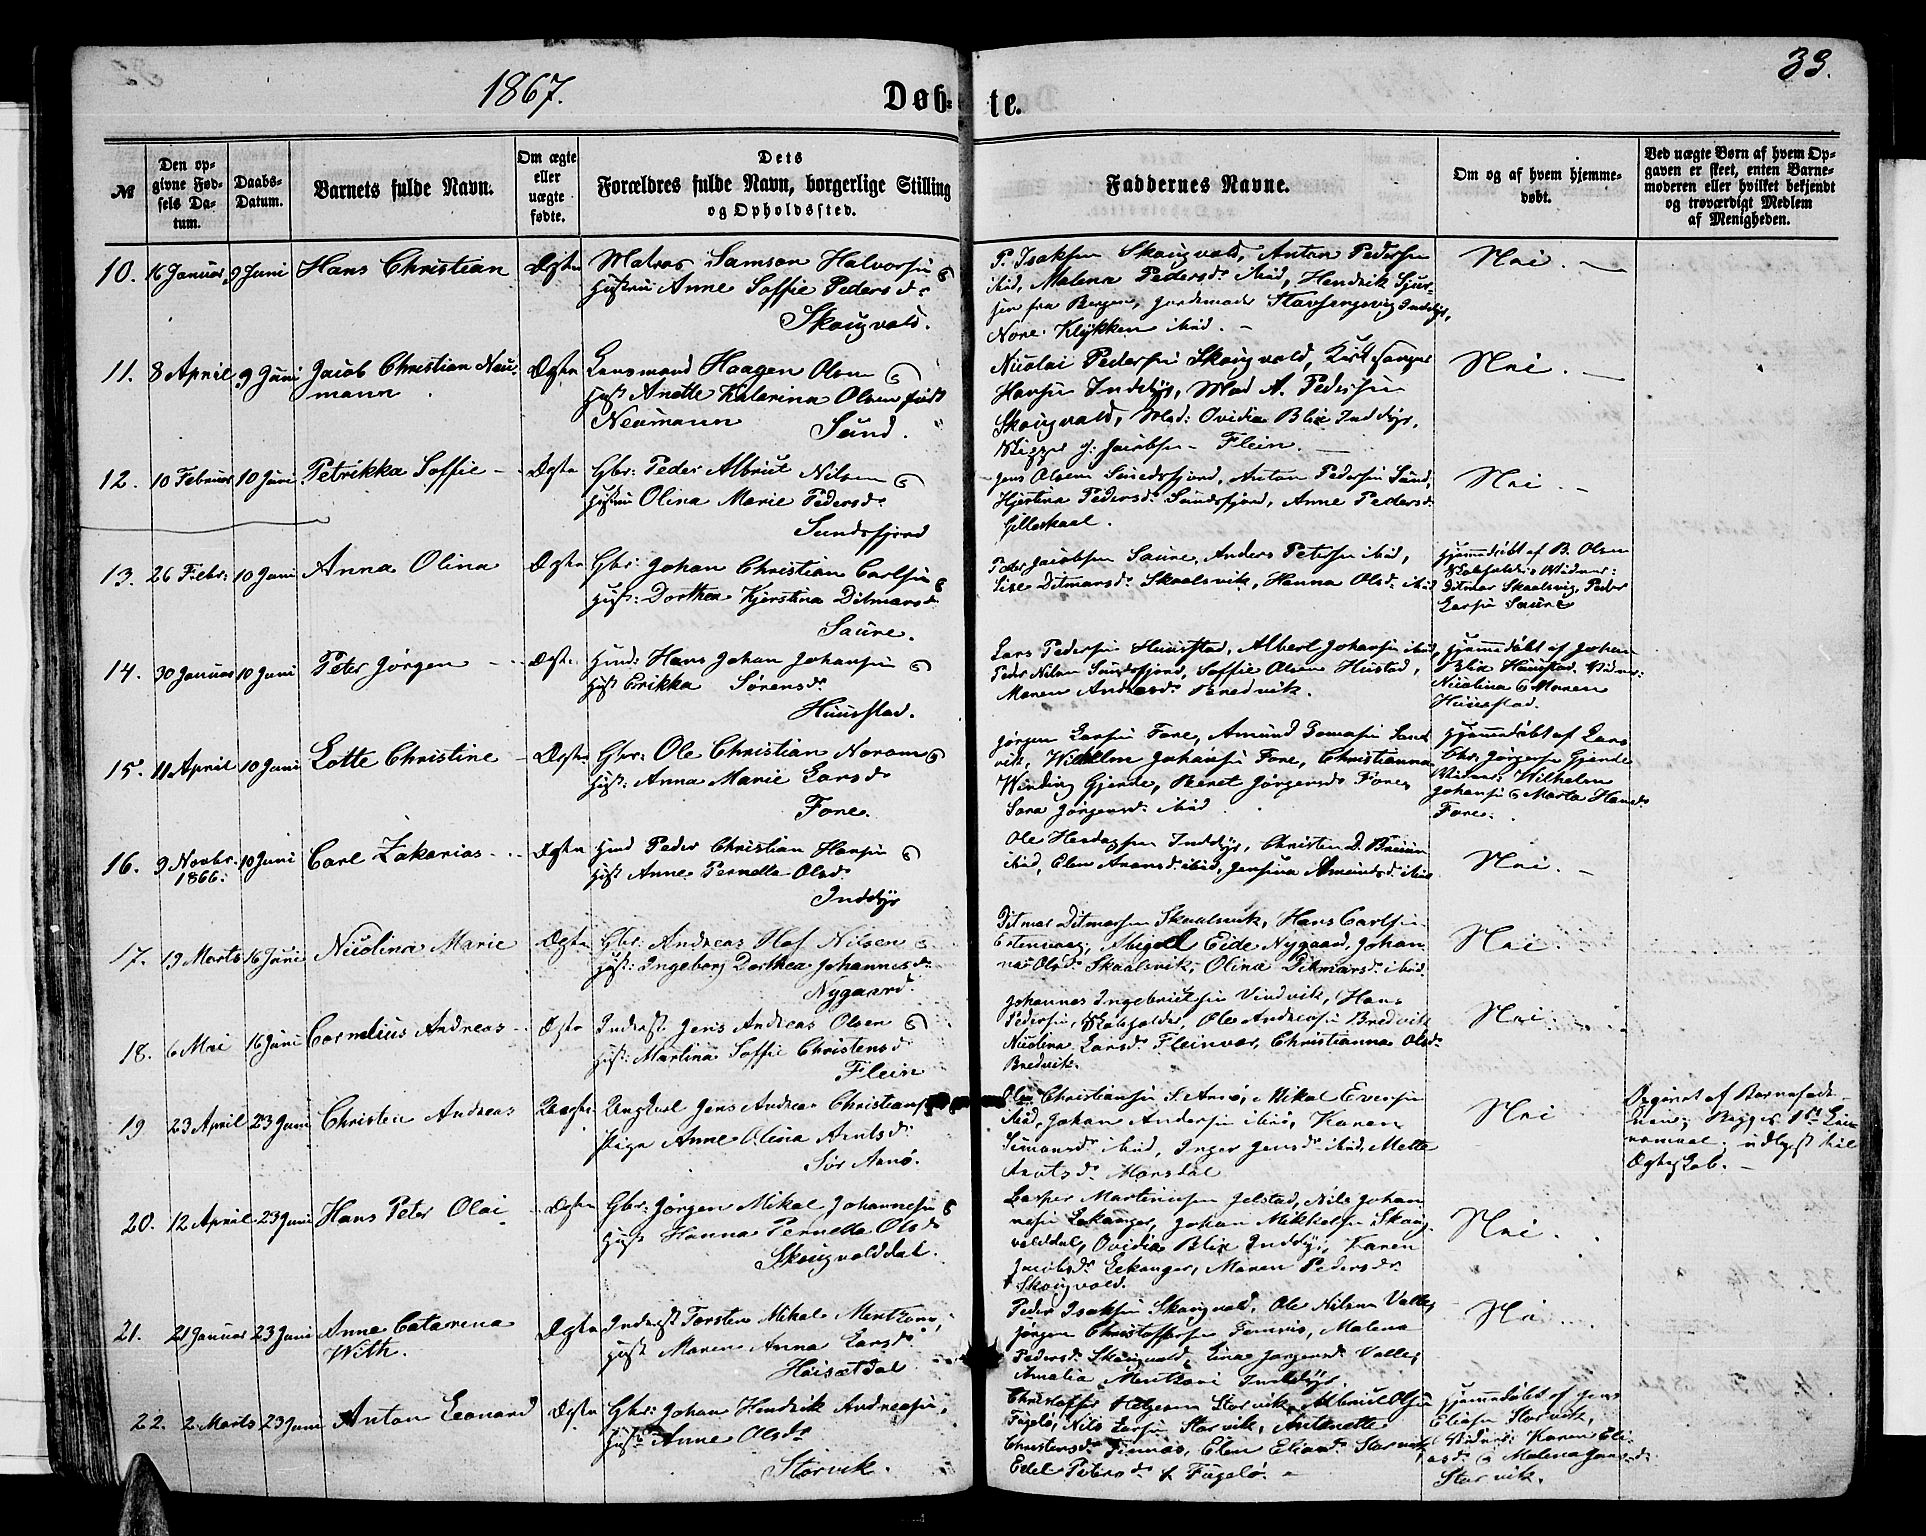 1867.
Døb-
te.
33.
№
Den op-
givne Fød-
sels Da-
tum.
Daabs-
Datum.
Barnets fulde Navn.
Om ægte
eller
uægte
fødte.
Dets
Forældres fulde Navn, borgerlige Stilling
og Opholdssted.
Faddernes Navne.
Om og af hvem hjemme-
døbt.
Ved uægte Børn af hvem Op-
gaven er skeet, enten Barne-
moderen eller hvilket bekjendt
og troværdigt Medlem
af Menigheden.
10. 16 Januar 9 Juni Hans Christian Ægte
Matros Samson Halvorsen &
Hustru Anne Soffie Pedersd.
Skougvold.
P. Isaksen Skougvold, Anton Pedersen
ibid, Malena Pedersd. ibid, Hendrik Sjur-
sen fra Bergen, Jordemoder Inddyr,
Klykken ibid.
Nei.
11. 8 April 9 Juni Jacob Christian Neu-
mann Ægte
Lensmand Haagen Olsen &
Hust Anette Katarina Olsen født
Neumann Sund.
Nicolai Pedersen Skougvold, Kirkesanger
Hansen Inddyr, Mad A. Pedersen
Skougvold, Mad: Ovidia Blix Inddyr,
J: Jacobsen Flein.
Nei.
12. 10 Februar 10 Juni Petrikka Soffie Ægte
Gbr: Peder Albrict Nilsen &
Hustru Olina Marie Pedersd.
Sundsfjord
Jens Olsen Sundsfjord, Anton Pedersen Sund,
Hjertina Pedersd. Sundsfjord, Anne Pedersd.
Gilleskaal.
Nei.
13. 26 Febr: 10 Juni Anna Olina Ægte
Gbr: Johan Christian Carlsen &
Hust: Dorthea Kjerstina Ditmarsd.
Saure.
Peder Jacobsen Saure, Anders Petersen ibid,
Sise Ditmarsd. Skaalsvik, Hanna Olsd. ibid
Hjemmedøbt af B. Olsen
Kobfolder Vidner:
Ditmar Skaalsvig, Peder
Larsen Saure
14. 30 Januar 10 Juni Peter Jørgen Ægte
Huusmd: Hans Johan Johansen &
Hust Erikka Sørensd.
Huusstad.
Lars Pedersen Huusstad, Albert Johansen ibid,
Peder Nilsen Sundsfjord, Soffie Olsen Hustad,
Maren Andreasd. Bredvik.
Hjemmedøbt af Johan
Blix Huusstad. Vidner:
Nicolina & Maren
Huusstad.
15. 11 April 10 Juni Lotte Christine Ægte
Gbr: Ole Christian Norum &
Hust: Anna Marie Larsd.
Fore.
Jørgen Larsen Fore, Amund Tomasen Sand
vik, Wilhelm Johansen Fore, Christianna
Winding Gjende, Beret Jørgensd. Fore,
Sara Jørgensd. ibid
Hjemmedøbt af Lars
Chr: Jørgensen Gjende
Vidner: Wilhelm
Johansen & Marta Hansd.
Fore.
16. 9 Novbr. 10 Juni Carl Zakarias Ægte
1866.
Huusmd Peder Christian Hansen &
Hust Anne Pernella Olsd.
Inddyr
Ole Inddyr, Christen D. Breivik
ibid, Elen Aronsd. ibid, Jensina Amundsd. ibid
Nei.
17. 19 Marts 16 Juni Nicolina Marie Ægte
Gbr: Andreas Hof Nilsen &
Hust: Ingeborg Dorthea Johannesd.
Nygaard.
Ditmar Ditmarsen Skaalsvik, Hans Carlsen
Abigael Eide Nygaard, Johan-
na Olsd. Skaalsvik, Olina Ditmarsd. ibid.
Nei.
18. 6 Mai 16 Juni Cornelius Andreas Ægte
Inderst Jens Andreas Olsen &
Hust: Martina Soffie Christensd.
Flein
Johannes Ingebrictsen Vindvik, Hans
Pedersen, Kobfolder, Ole Andreasen Bredvik
Nicolina Larsd. Fleinvær, Christianna Olsd.
Bredvik.
Nei.
19 23 April 23 Juni Christen Andreas Uægte
Ungkarl Jens Andreas Christiansen
Pige Anne Olina Arntsd.
Sør Arnø.
Ole Christiansen S. Arnø, Mikal Evensen
ibid, Johan Andersen ibid, Karen
Simonsd. ibid, Inger Jensd. ibid, Mette
Arntsd. Horsdal
Nei
Opgivet af Barnefade-
ren; Begges 1st Leier-
maal; udlyst til
Ægteskab.
20. 12 April 23 Juni Hans Peter Olai Ægte
Gbr: Jørgen Mikal Johannesen &
Hust Hanna Pernella Olsd.
Skougvolddal.
Casper Martinusen Jelstad, Nils Johan
nesen Eekanger, Johan Mikkelsen Skoug
volddal, Ovidia Blix Inddyr, Karen
Jacobsd. Eekanger, Maren Pedersd.
Skougvold.
Nei.
21. 21 Januar 23 Juni Anne Catarina
With. Ægte
Inderst Torsten Mikal Mentzoni,
Hust Maren Anna Larsd.
Høisætdal
Peder Isaksen Skougvold, Ole Nilsen Valle,
Jørgen Christoffersen Finnvis, Malena
Pedersd. Skougvold, Lina Jørgensd. Valle,
Amalia Mentzoni Inddyr.
Nei.
22. 2 Marts 23 Juni Anton Leonard Ægte
Gbr: Johan Hendrik Andreasen,
Hust: Anne Olsd.
Storvik.
Christoffer Helgesen Storvik, Albrict Olsen
Fugelø, Nils Larsen Storvik, Antonette
Christensd. Finnæs, Elen Eliasd. Storvik
Edel Petersd. Fugelø.
Hjemmedøbt af Jens
Eliasen Storvik,
Vidner: Karen Eli-
asd. & Malena Jansd.
Storvik.